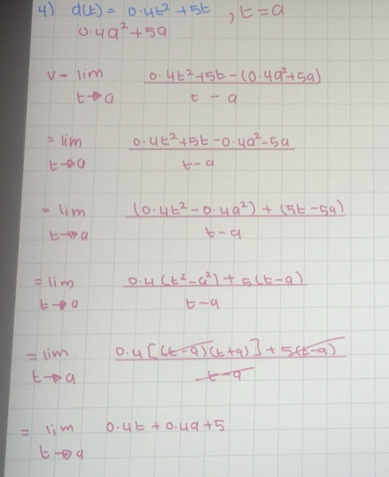 4) d(t) = 0.4t² + 5t , t = a
0.4a² + 5a
v - lim 0.4t² + 5t - (0.4a² + 5a)
t→a t - a
= lim 0.4t² + 5t - 0.4a² - 5a
t→a t - a
= lim (0.4t² - 0.4a²) + (5t - 5a)
t→a t - a
= lim 0.4(t² - a²) + 5(t - a)
t→a t - a
= lim 0.4[(t - a)(t + a)] + 5(t - a)
t→a t - a
= lim 0.4t + 0.4a + 5
t→a